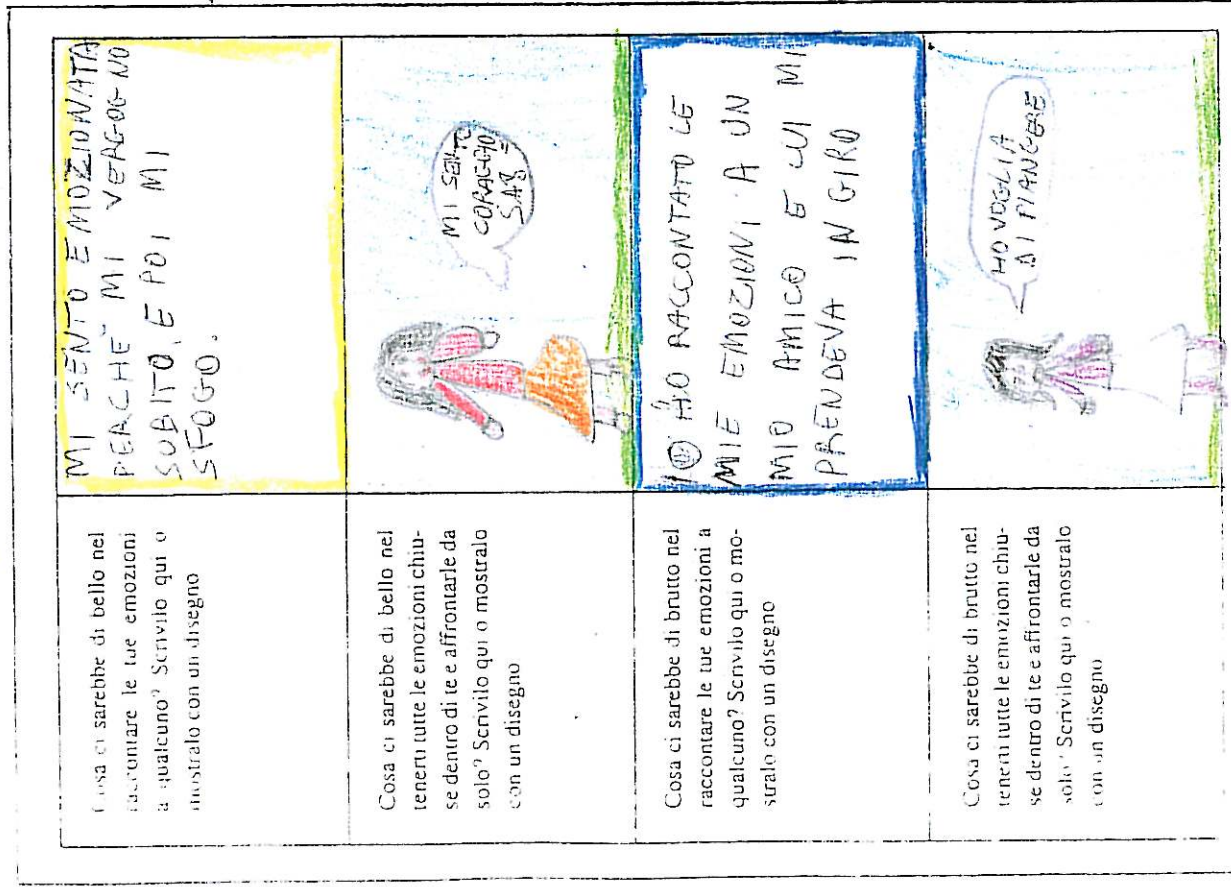 Cosa ci sarebbe di bello nel
raccontare le tue emozioni
a qualcuno? Scrivilo qui o
mostralo con un disegno
MI SENTO EMOZIONATA
PERCHÉ MI VERGOGNO
SUBITO, E POI MI
SFOGO.
Cosa ci sarebbe di bello nel
tenerti tutte le emozioni chiu-
se dentro di te e affrontarle da
solo? Scrivilo qui o mostralo
con un disegno
MI SENTO
CORAGGIO
SA
Cosa ci sarebbe di brutto nel
raccontare le tue emozioni a
qualcuno? Scrivilo qui o mo-
stralo con un disegno
IO HO RACCONTATO LE
MIE EMOZIONI A UN
MIO AMICO E LUI MI
PRENDEVA IN GIRO
Cosa ci sarebbe di brutto nel
tenerti tutte le emozioni chiu-
se dentro di te e affrontarle da
solo? Scrivilo qui o mostralo
con un disegno
HO VOGLIA
DI PIANGERE